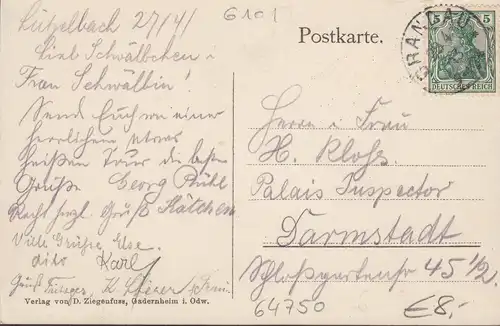 Lützelbach 27/4/
6101
Postkarte.
BRANDAU
5 5
DEUTSCHES REICH
Liebe Schwälbchen u
Frau Schwälbin!
Send Euch von einer
herrlichen etwas
heißen Tour die besten
Grüße Georg Rühl
Recht herzl. Gruß Kätchen
Viele Grüße Else.
dito Karl
Gruß
Verlag von D. Ziegenfuss, Gadernheim i. Odw.
Herrn u Frau
H. Klohs.
Palais Inspector
Darmstadt
Schloßgartenstr 45 1/2.
64750
€8,-